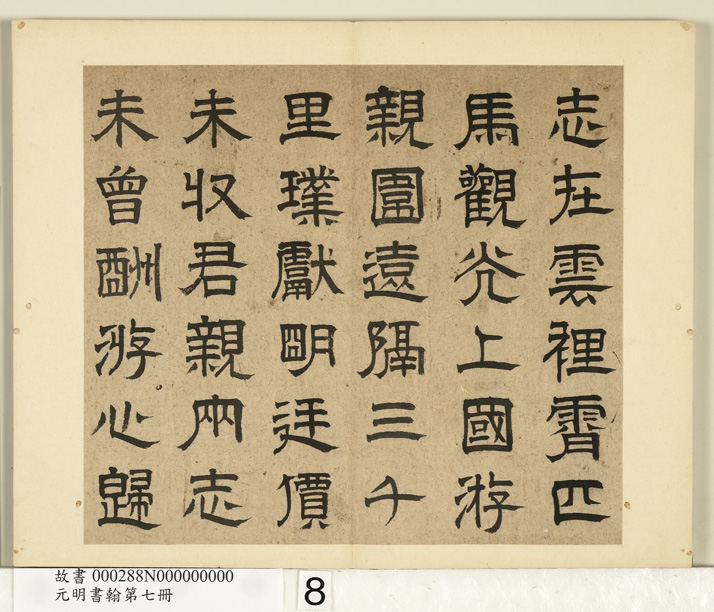 志在雲裡霄匹
馬觀光上國游
親園遠隔三千
里璞獻明廷價
未収君親兩志
未曾酬游心歸
故書 000288N000000000
元明書翰第七冊
8